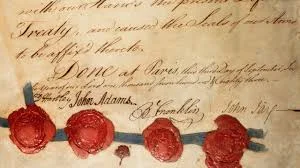 with our Hands the present
Treaty, and caused the Seals of our Arms
to be affix'd thereto.
Done at Paris, this third day of September, In
thousand, seven hundred & eighty three.
D Hartley John Adams. B Franklin John Jay